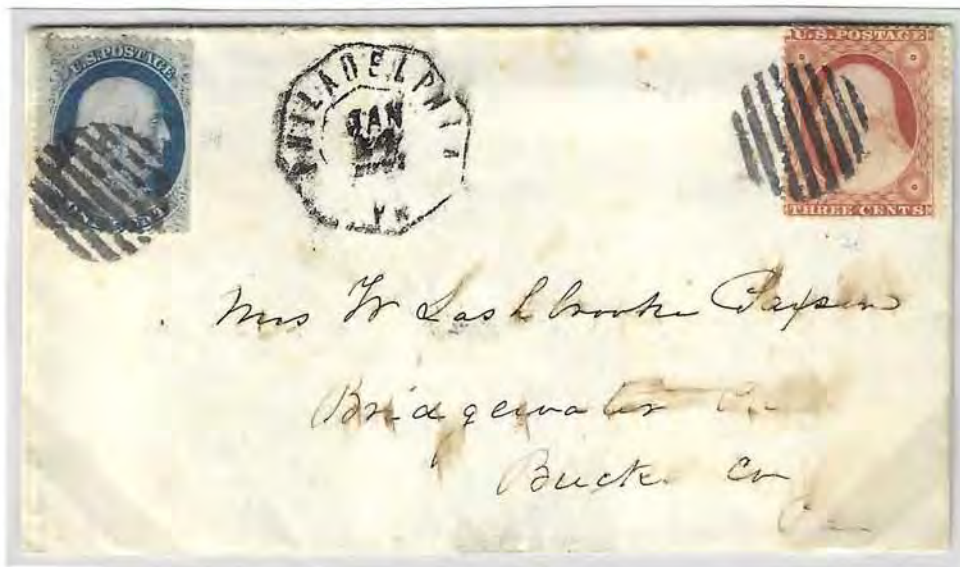 U.S. POSTAGE
ONE CENT
PHILADELPHIA
JAN
PA
U.S. POSTAGE
THREE CENTS
Mrs W Lashbrooke Paxson
Bridgewater
Bucks Co